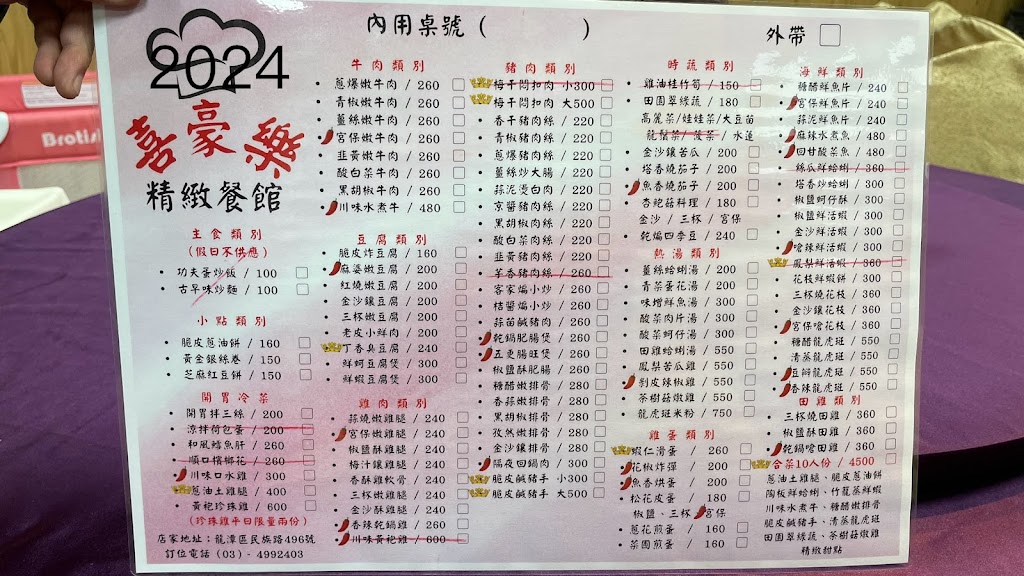 內用桌號 (          )
外帶 □
2024
喜豪樂
精緻餐館
主食類別
(假日不供應)
• 功夫蛋炒飯 / 100 □
• 古早味炒麵 / 100 □
小點類別
• 脆皮蔥油餅 / 160 □
• 黃金銀絲卷 / 150 □
• 芝麻紅豆餅 / 150 □
開胃冷菜
• 開胃拌三絲 / 200 □
• 涼拌荷包蛋 / 200 □
• 和風鱈魚肝 / 260 □
• 順口檳榔花 / 260 □
• 川味口水雞 / 300 □
• 蔥油土雞腿 / 400 □
• 黃袍珍珠雞 / 600 □
(珍珠雞平日限量兩份)
店家地址：龍潭區民族路496號
訂位電話 (03) - 4992403
牛肉類別
• 蔥爆嫩牛肉 / 260 □
• 青椒嫩牛肉 / 260 □
• 薑絲嫩牛肉 / 260 □
• 宮保嫩牛肉 / 260 □
• 韭黃嫩牛肉 / 260 □
• 酸白菜牛肉 / 260 □
• 黑胡椒牛肉 / 260 □
• 川味水煮牛 / 480 □
豆腐類別
• 脆皮炸豆腐 / 160 □
• 麻婆嫩豆腐 / 200 □
• 紅燒嫩豆腐 / 200 □
• 金沙鑲豆腐 / 200 □
• 三杯嫩豆腐 / 200 □
• 老皮小鮮肉 / 200 □
• 丁香臭豆腐 / 240 □
• 鮮蚵豆腐煲 / 300 □
• 鮮蝦豆腐煲 / 300 □
雞肉類別
• 蒜燒嫩雞腿 / 240 □
• 宮保嫩雞腿 / 240 □
• 椒鹽酥雞腿 / 240 □
• 梅汁鑲雞腿 / 240 □
• 香酥雞軟骨 / 240 □
• 三杯嫩雞腿 / 240 □
• 金沙酥雞腿 / 240 □
• 香辣乾鍋雞 / 260 □
• 川味黃袍雞 / 600 □
豬肉類別
• 梅干悶扣肉 小300 □
• 梅干悶扣肉 大500 □
• 香干豬肉絲 / 220 □
• 青椒豬肉絲 / 220 □
• 蔥爆豬肉絲 / 220 □
• 薑絲炒大腸 / 220 □
• 蒜泥燙白肉 / 220 □
• 京醬豬肉絲 / 220 □
• 黑胡椒肉絲 / 220 □
• 酸白菜肉絲 / 220 □
• 韭黃豬肉絲 / 220 □
• 芋香豬肉絲 / 260 □
• 客家煸小炒 / 260 □
• 桔醬煸小炒 / 260 □
• 蒜苗鹹豬肉 / 260 □
• 乾鍋肥腸煲 / 260 □
• 五更腸旺煲 / 260 □
• 椒鹽酥肥腸 / 260 □
• 糖醋嫩排骨 / 280 □
• 香蒜嫩排骨 / 280 □
• 黑胡椒排骨 / 280 □
• 孜然嫩排骨 / 280 □
• 金沙鑲排骨 / 280 □
• 隔夜回鍋肉 / 300 □
• 脆皮鹹豬手 小300 □
• 脆皮鹹豬手 大500 □
時蔬類別
• 雞油桂竹筍 / 150 □
• 田園翠綠蔬 / 180 □
高麗菜/娃娃菜/大豆苗
龍鬚菜/菠菜/水蓮
• 金沙鑲苦瓜 / 200 □
• 塔香燒茄子 / 200 □
• 魚香燒茄子 / 200 □
• 杏鮑菇料理 / 180 □
金沙 / 三杯 / 宮保
• 乾煸四季豆 / 240 □
熱湯類別
• 薑絲蛤蜊湯 / 200 □
• 青菜蛋花湯 / 200 □
• 味增鮮魚湯 / 300 □
• 酸菜肉片湯 / 300 □
• 酸菜蚵仔湯 / 300 □
• 田雞蛤蜊湯 / 500 □
• 鳳梨苦瓜雞 / 550 □
• 剝皮辣椒雞 / 550 □
• 茶樹菇燉雞 / 550 □
• 龍虎斑米粉 / 750 □
雞蛋類別
• 蝦仁滑蛋 / 260 □
• 花椒炸彈 / 200 □
• 魚香烘蛋 / 200 □
• 松花皮蛋 / 180 □
椒鹽、三杯 宮保
• 蔥花煎蛋 / 160 □
• 菜圃煎蛋 / 160 □
海鮮類別
• 糖醋鮮魚片 / 240 □
• 宮保鮮魚片 / 240 □
• 蒜泥鮮魚片 / 240 □
• 麻辣水煮魚 / 480 □
• 回甘酸菜魚 / 480 □
• 絲瓜鮮蛤蜊 / 360 □
• 塔香炒蛤蜊 / 300 □
• 椒鹽蚵仔酥 / 300 □
• 椒鹽鮮活蝦 / 300 □
• 金沙鮮活蝦 / 300 □
• 嗆辣鮮活蝦 / 300 □
• 鳳梨鮮活蝦 / 360 □
• 花枝鮮蝦餅 / 300 □
• 三杯燒花枝 / 360 □
• 金沙鑲花枝 / 360 □
• 宮保嗆花枝 / 360 □
• 糖醋龍虎斑 / 550 □
• 清蒸龍虎斑 / 550 □
• 豆瓣龍虎斑 / 550 □
• 香辣龍虎斑 / 550 □
田雞類別
• 三杯燒田雞 / 360 □
• 椒鹽酥田雞 / 360 □
• 乾鍋嗆田雞 / 360 □
• 合菜10人份 / 4500 □
蔥油土雞腿、脆皮蔥油餅
陶板鮮蛤蜊、竹籠蒸鮮蝦
川味水煮牛、糖醋嫩排骨
脆皮鹹豬手、清蒸龍虎斑
田園翠綠蔬、茶樹菇燉雞
精緻甜點